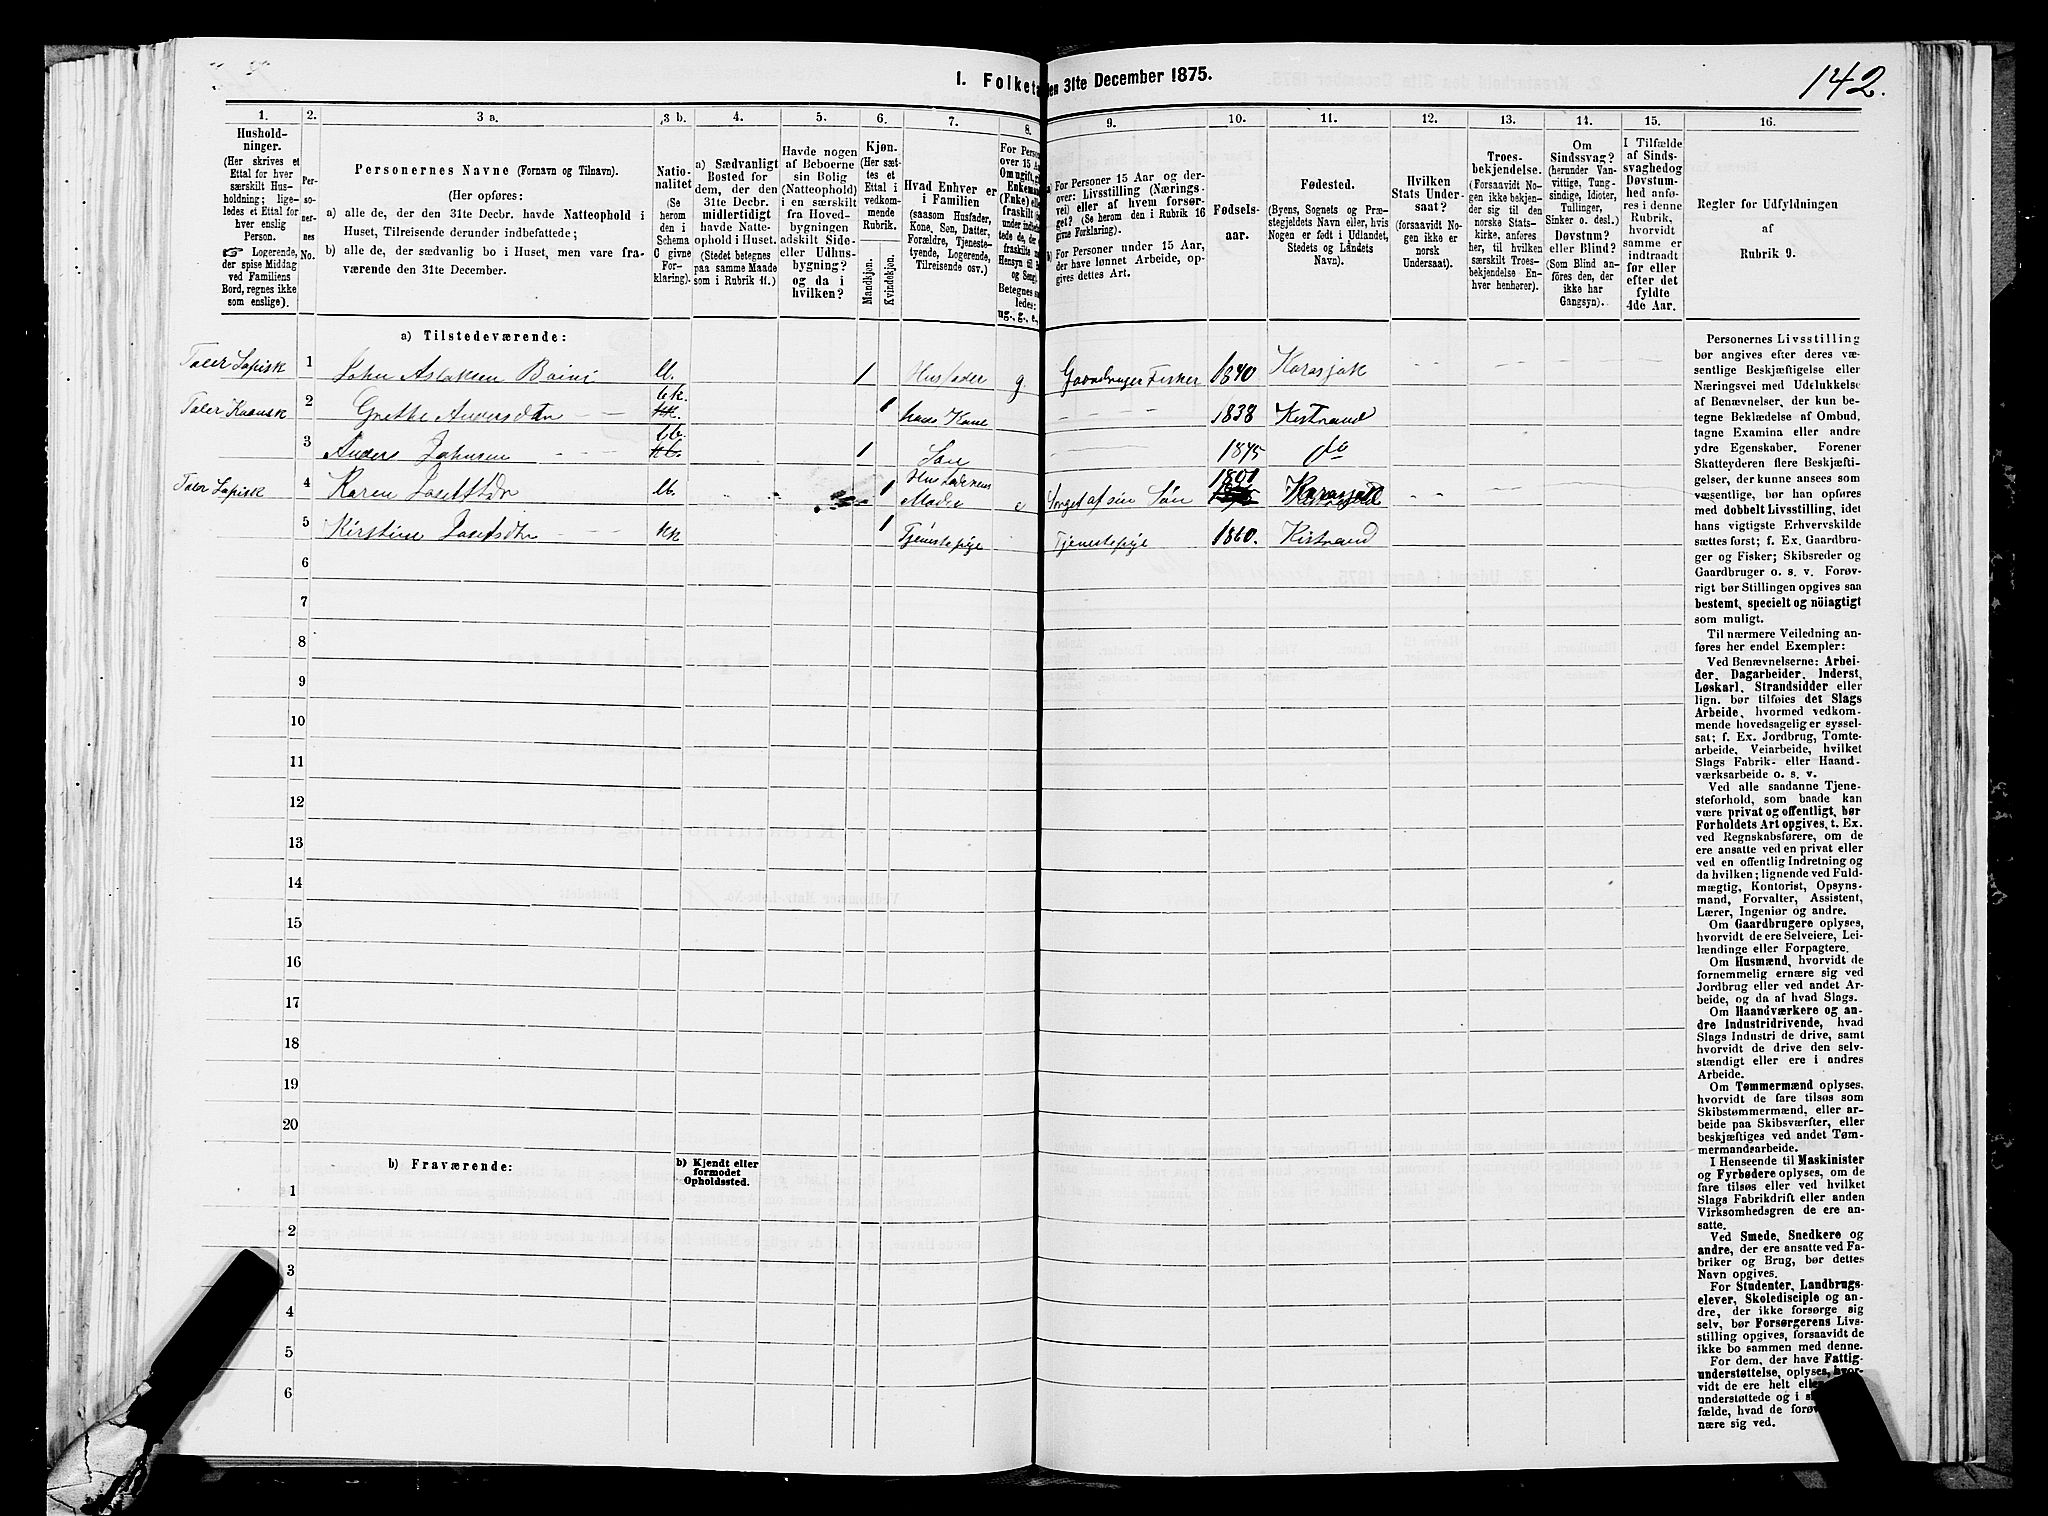 142.
I. Folketa en 31te December 1875.
1.
2.
3 a.
3 b.
4.
5.
6.
7.
8.
9.
10.
11.
12.
13.
14.
15.
16.
Hushold-
ninger.
(Her skrives et
Ettal for hver
særskilt Hus-
holdning; lige-
ledes et Ettal for
hver enslig
Person.
Logerende,
der spise Middag
ved Familiens
Bord, regnes ikke
som enslige).
Per-
so-
ner-
nes
No.
Personernes Navne (Fornavn og Tilnavn).
(Her opføres:
a) alle de, der den 31te Decbr. havde Natteophold i
Huset, Tilreisende derunder indbefattede;
b) alle de, der sædvanlig bo i Huset, men vare fra-
værende den 31te December.
Natio-
nalitet
(Se
herom
den i
Schema
C givne
For-
klaring).
a) Sædvanligt
Bosted for
dem, der den
31te Decbr.
midlertidigt
havde Natte-
ophold i Huset.
(Stedet betegnes
paa samme Maade
som i Rubrik 11.)
Havde nogen
af Beboerne
sin Bolig
(Natteophold)
i en særskilt
fra Hoved-
bygningen
adskilt Side-
eller Udhus-
bygning?
og da i
hvilken?
Kjøn.
(Her sæt-
tes et
Ettal i
vedkom-
mende
Rubrik.
Mandkjøn.
Kvindekjøn.
Hvad Enhver er
i Familien
(saasom Husfader,
Kone, Søn, Datter,
Forældre, Tjeneste-
tyende, Logerende,
Tilreisende osv.)
For Person
over 15 Aa
Om ugift, g
Enkema
(Enke) elle
fraskilt
Betegnes
ledes:
ug., g., e.,
a) For Personer 15 Aar og der-
over: Livsstilling (Nærings-
vei) eller af hvem forsør-
get? (Se herom i Rubrik 16
givne Forklaring).
b) For Personer under 15 Aar,
der have lønnet Arbeide, op-
gives dettes Art.
Fødsels-
aar.
Fødested.
(Byens, Sognets og Præ-
stegjeldets Navn eller, hvis
Nogen er født i Udlandet,
Stedets og Landets
Navn).
Hvilken
Stats Under-
saat?
(forsaavidt No-
gen ikke er
norsk
Undersaat).
Troes-
bekjendelse.
(Forsaavidt No-
gen ikke bekjen-
der sig til den
norske Stats-
kirke, anføres
her, til hvilken
særskilt Troes-
bekjendelse En-
hver henhører).
Om
Sindssvag?
(herunder Van-
vittige, Tung-
sindige, Idioter,
Tullinger,
Sinker o. desl.).
Døvstum?
eller Blind?
(Som Blind an-
føres den, der
ikke har
Gangsyn).
I Tilfælde
af Sinds-
svaghed og
Døvstum-
hed anfø-
res i denne
Rubrik,
hvorvidt
samme er
indtraadt
før eller
efter det
fyldte
4de Aar.
Regler for Udfyldningen
af
Rubrik 9.
a) Tilstedeværende:
Taler Lapisk 1 John Aslaksen Baini ll. 1 Husfader g. Gaardbruger Fisker 1840 Karasjok
Taler Kvænsk 2 Grethe Andersdtr bk. 1 hans Kone 1838 Kistrand
3 Anders Johnsen bb. 1 Søn 1875 do
Taler Lapisk 4 Karen Josefsdtr ll. 1 Husfaderens Moder e Sørget af sin Søn 1801 Karasjok
5 Kirstine Josefsdtr kk 1 Tjenestepige Tjenestepige 1860. Kistrand
6
7
8
9
10
11
12
13
14
15
16
17
18
19
20
b) Fraværende:
b) Kjendt eller
formodet
Opholdssted.
1
2
3
4
5
6
Personernes Livsstilling
bør angives efter deres væ-
sentlige Beskjæftigelse eller
Næringsvei med Udelukkelse
af Benævnelser, der kun be-
tegne Beklædelse af Ombud,
tagne Examina eller andre
ydre Egenskaber. Forener
Skatteyderen flere Beskjæfti-
gelser, der kunne ansees som
væsentlige, bør han opføres
med dobbelt Livsstilling, idet
hans vigtigste Erhvervskilde
sættes først; f. Ex. Gaardbru-
ger og Fisker; Skibsreder og
Gaardbruger o. s. v. Forøv-
rigt bør Stillingen opgives saa
bestemt, specielt og nöiagtigt
som muligt.
Til nærmere Veiledning an-
føres her endel Exempler:
Ved Benævnelserne: Arbei-
der, Dagarbeider, Inderst,
Løskarl, Strandsidder eller
lign. bør tilføies det Slags
Arbeide, hvormed vedkom-
mende hovedsagelig er syssel-
sat; f. Ex. Jordbrug, Tomte-
arbeide, Veiarbeide, hvilket
Slags Fabrik- eller Haand-
værksarbeide o. s. v.
Ved alle saadanne Tjene-
steforhold, som baade kan
være privat og offentligt, bør
Forholdets Art opgives, t. Ex.
ved Regnskabsførere, om de
ere ansatte ved en privat eller
ved en offentlig Indretning og
da hvilken; lignende ved Fuld-
mægtig, Kontorist, Opsyns-
mand, Forvalter, Assistent,
Lærer, Ingeniør og andre.
Om Gaardbrugere oplyses,
hvorvidt de ere Selveiere, Lei-
lændinge eller Forpagtere.
Om Husmænd, hvorvidt de
fornemmelig ernære sig ved
Jordbrug eller ved andet Ar-
beide, og da af hvad Slags.
Om Haandværkere og an-
dre Industridrivende, hvad
Slags Industri de drive, samt
hvorvidt de drive den selv-
stændigt eller ere i andres
Arbeide.
Om Tømmermænd oplyses,
hvorvidt de fare tilsøs som
Skibstømmermænd, eller ar-
beide paa Skibsværfter, eller
beskjæftiges ved andet Tøm-
mermandsarbeide.
I Henseende til Maskinister
og Fyrbødere oplyses, om de
fare tilsøs eller ved hvilket
Slags Fabrikdrift eller anden
Virksomhedsgren de ere an-
satte.
Ved Smede, Snedkere og
andre, der ere ansatte ved Fa-
briker og Brug, bør dettes
Navn opgives.
For Studenter, Landbrugs-
elever, Skoledisciple og an-
dre, der ikke forsørge sig
selv, bør Forsørgerens Livs-
stilling opgives, forsaavidt de
ikke bo sammen med denne.
For dem, der have Fattig-
understøttelse, oplyses, hvor-
vidt de ere helt elle
understøttede og i s
fælde, hvad de forøv
nære sig ved.